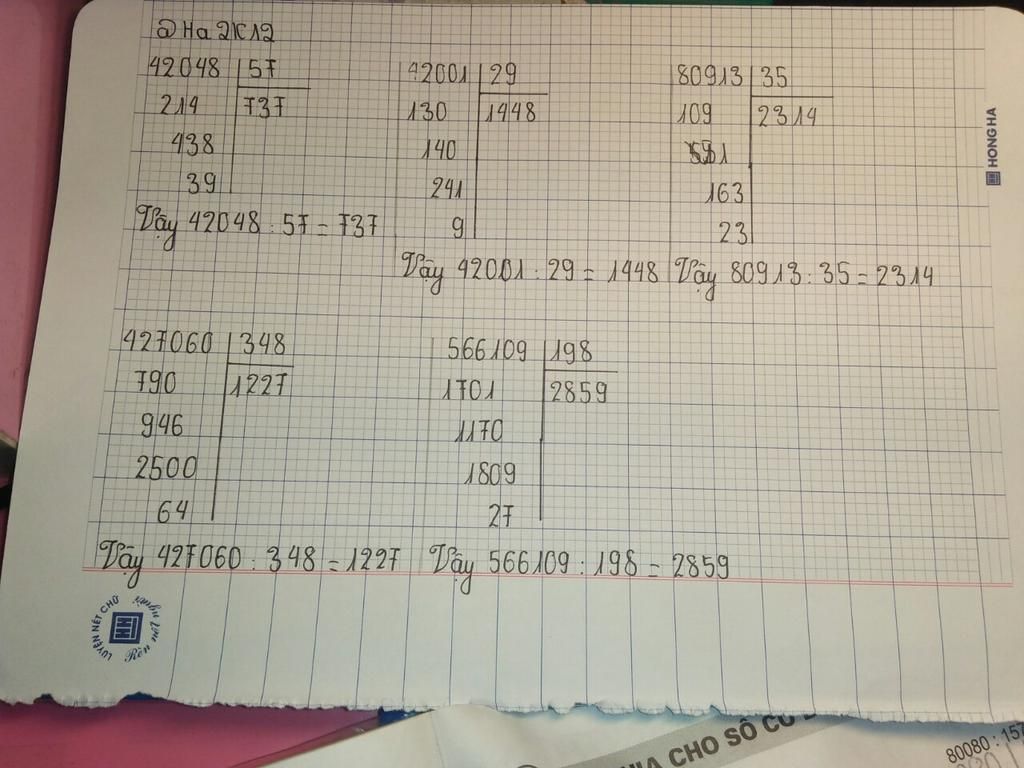 @Ha2K12
42048 57
214 737
438
39
Vậy 42048 : 57 = 737
42001 29
130 1448
140
241
9
Vậy 42001 : 29 = 1448
80913 35
109 2314
163
23
Vậy 80913 : 35 = 2314
HONG HA
427060 348
790 1227
946
2500
64
Vậy 427060 : 348 = 1227
566109 198
1701 2859
1170
1809
27
Vậy 566109 : 198 = 2859
LUYỆN NÉT CHỮ
Rèn nết người
CHIA CHO SỐ CÓ
80080 : 157